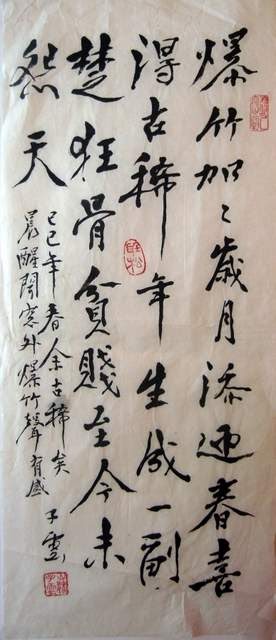 爆竹加〻歲月添迎春喜
得古稀年生成一副
楚狂骨貧賤至今未
怨天
己巳年春余古稀矣
晨醒聞窓外爆竹聲有感
子雲